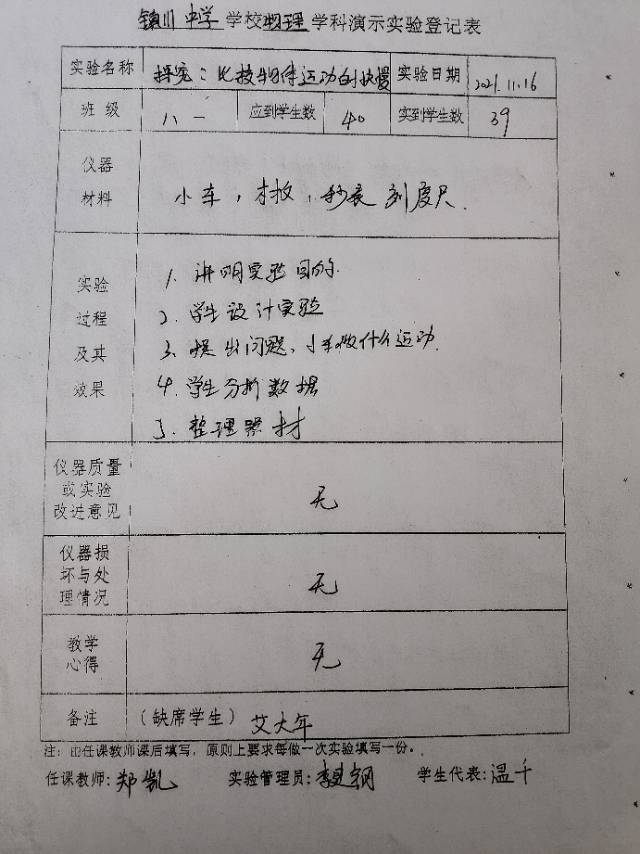 镇川中学学校物理学科演示实验登记表
实验名称 探究：比较物体运动的快慢 实验日期 2021.11.16
班级 八一 应到学生数 40 实到学生数 39
仪器材料 小车，木板，秒表 刻度尺.
实验过程及其效果
1. 讲明实验目的
2. 学生设计实验
3. 提出问题、小车做什么运动.
4. 学生分析数据
5. 整理器材
仪器质量或实验改进意见 无
仪器损坏与处理情况 无
教学心得 无
备注 (缺席学生) 艾大年
注：由任课教师课后填写，原则上要求每做一次实验填写一份。
任课教师：郑凯 实验管理员：李建钢 学生代表：温千